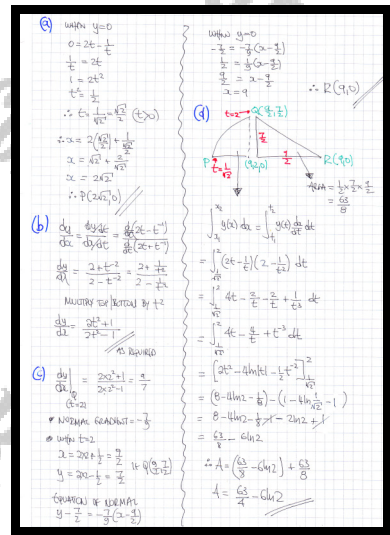 (a) WHEN y=0
0 = 2t - 1/t
1/t = 2t
1 = 2t²
t² = 1/2
∴ t = 1/√2 = √2/2 (t>0)
∴ x = 2(√2/2) + 1/(√2/2)
x = √2 + 2/√2
x = 2√2
∴ P(2√2,0)
(b) dy/dx = (dy/dt)/(dx/dt) = d/dt(2t - t⁻¹) / d/dt(2t + t⁻¹)
dy/dx = (2 + t⁻²)/(2 - t⁻²) = (2 + 1/t²)/(2 - 1/t²)
MULTIPLY TOP & BOTTOM BY t²
dy/dx = (2t²+1)/(2t²-1)
AS REQUIRED
(c) dy/dx|Q (t=2) = (2×2²+1)/(2×2²-1) = 9/7
• NORMAL GRADIENT = -7/9
• WHEN t=2
x = 2×2+1/2 = 9/2
y = 2×2-1/2 = 7/2
IE Q(9/2,7/2)
EQUATION OF NORMAL
y - 7/2 = -7/9(x - 9/2)
WHEN y=0
-7/2 = -7/9(x - 9/2)
1/2 = 1/9(x - 9/2)
9/2 = x - 9/2
x = 9
∴ R(9,0)
(d)
t=2 Q(9/2,7/2)
7/2
P
t=1/√2
(9/2,0)
9/2
R(9,0)
AREA = 1/2 × 7/2 × 9/2
= 63/8
∫ y(x) dx = ∫ y(t) dx/dt dt
= ∫ (2t - 1/t)(2 - 1/t²) dt
= ∫ 4t - 2/t - 2/t + 1/t³ dt
= ∫ 4t - 4/t + t⁻³ dt
= [2t² - 4ln|t| - 1/2 t⁻²]
= (8 - 4ln2 - 1/8) - (1 - 4ln 1/√2 - 1)
= 8 - 4ln2 - 1/8 - 1 - 2ln2 + 1
= 63/8 - 6ln2
∴ A = (63/8 - 6ln2) + 63/8
A = 63/4 - 6ln2